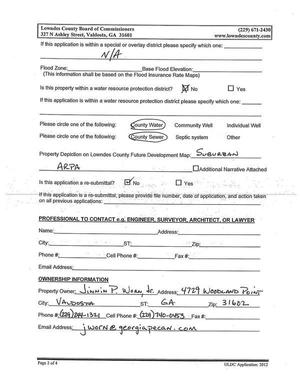 Lowndes County Board of Commissioners (229) 671-2430
327 N Ashley Street, Valdosta, GA 31601 www.lowndescounty.com
If this application is within a special or overlay district please specify which one:
N/A
Flood Zone: Base Flood Elevation:
(This information shall be based on the Flood Insurance Rate Maps)
Is this property within a water resource protection district? No Yes
If this application is within a water resource protection district please specify which one:
Please circle one of the following: County Water Community Well Individual Well
Please circle one of the following: County Sewer Septic system Other
Property Depiction on Lowndes County Future Development Map: SUBURBAN
AREA Additional Narrative Attached
Is this application a re-submittal? No Yes
If this application is a re-submittal, please provide file number, date of application, and action taken
on all previous applications:
PROFESSIONAL TO CONTACT e.g. ENGINEER, SURVEYOR, ARCHITECT, OR LAWYER
Name: Address:
City: ST: Zip:
Phone #: Cell Phone #: Fax #:
Email Address:
OWNERSHIP INFORMATION
Property Owner: P. WORN, Jr. Address: 4729 WOODLAND POINT
City: VALDOSTA ST: GA Zip: 31602
Phone #: (229) 244-1321 Cell Phone #: (229) 740-0453 Fax #:
Email Address: jworn@georgiapecan.com
Page 2 of 4 ULDC Application: 2012